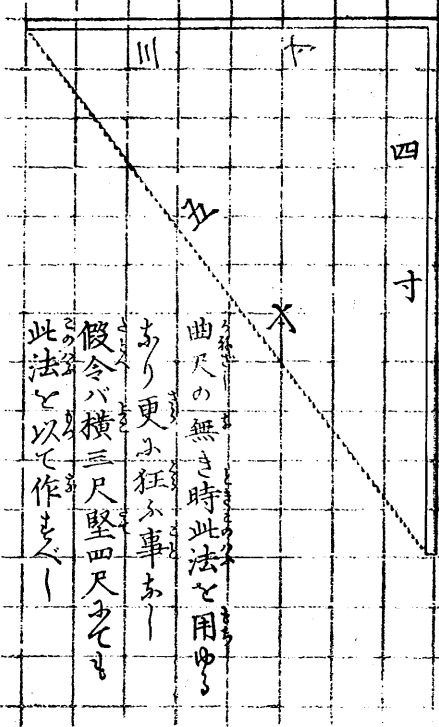 三寸
四寸
五寸
曲尺の無き時此法を用ゆる
なり更に狂ふ事なし
假令バ横三尺堅四尺にても
此法を以て作すべし